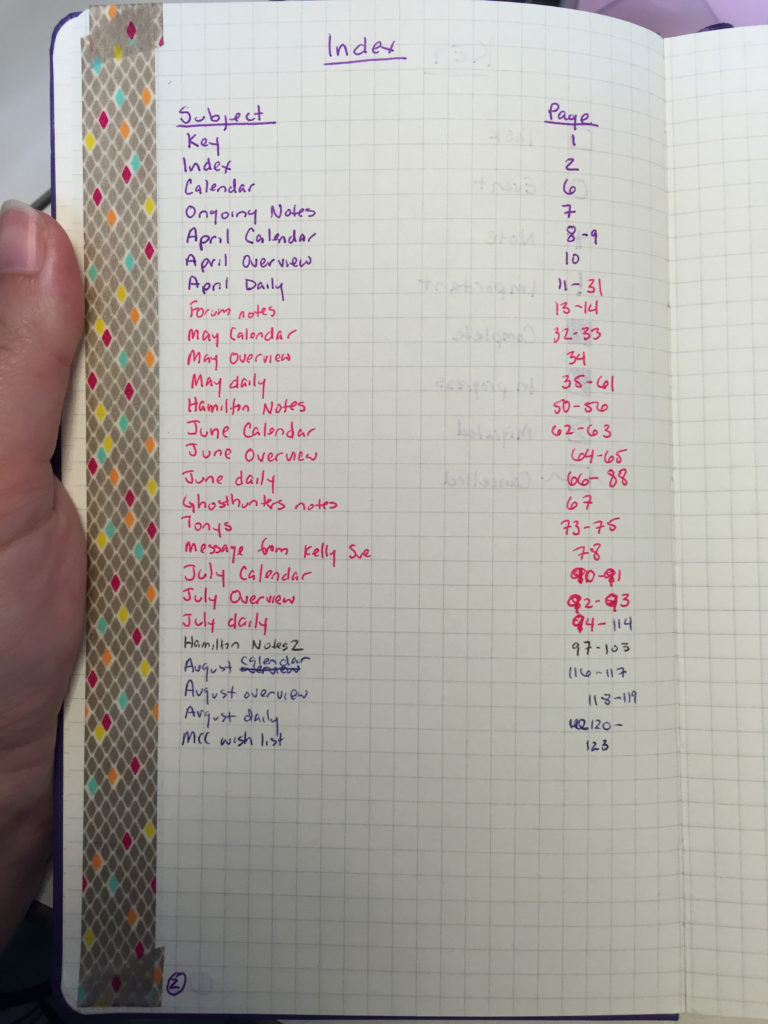 Index
Subject Page
Key 1
Index 2
Calendar 6
Ongoing Notes 7
April Calendar 8-9
April Overview 10
April Daily 11-31
Forum notes 13-14
May Calendar 32-33
May Overview 34
May daily 35-61
Hamilton Notes 50-56
June Calendar 62-63
June Overview 64-65
June daily 66-88
Ghosthunters notes 67
Tonys 73-75
Message from Kelly Sue 78
July Calendar 90-91
July Overview 92-93
July daily 94-114
Hamilton Notes 2 97-103
August calendar 116-117
August overview 118-119
August daily 120-
MCC wish list 123
2